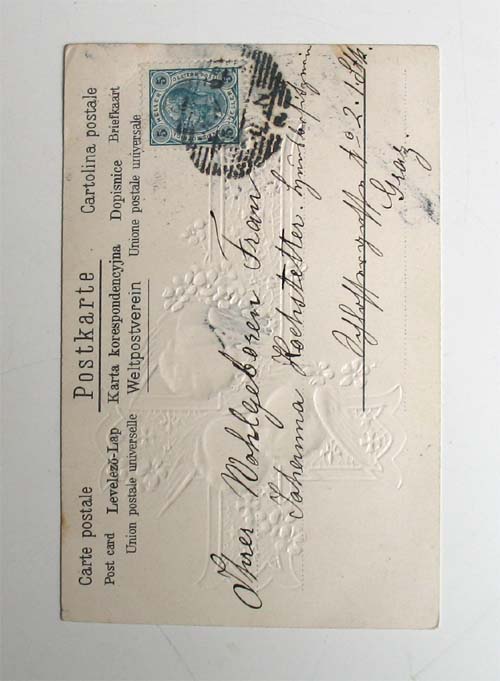 Carte postale Postkarte Cartolina postale
Post card Levelező-Lap Karta korespondencyjna Dopisnice Briefkaart
Union postale universelle Weltpostverein Unione postale universale
5 5
5 5
Ihrer Wohlgeboren Frau
Johanna Hochstetter
Schlossergasse No 2. I. Stk.
Graz.